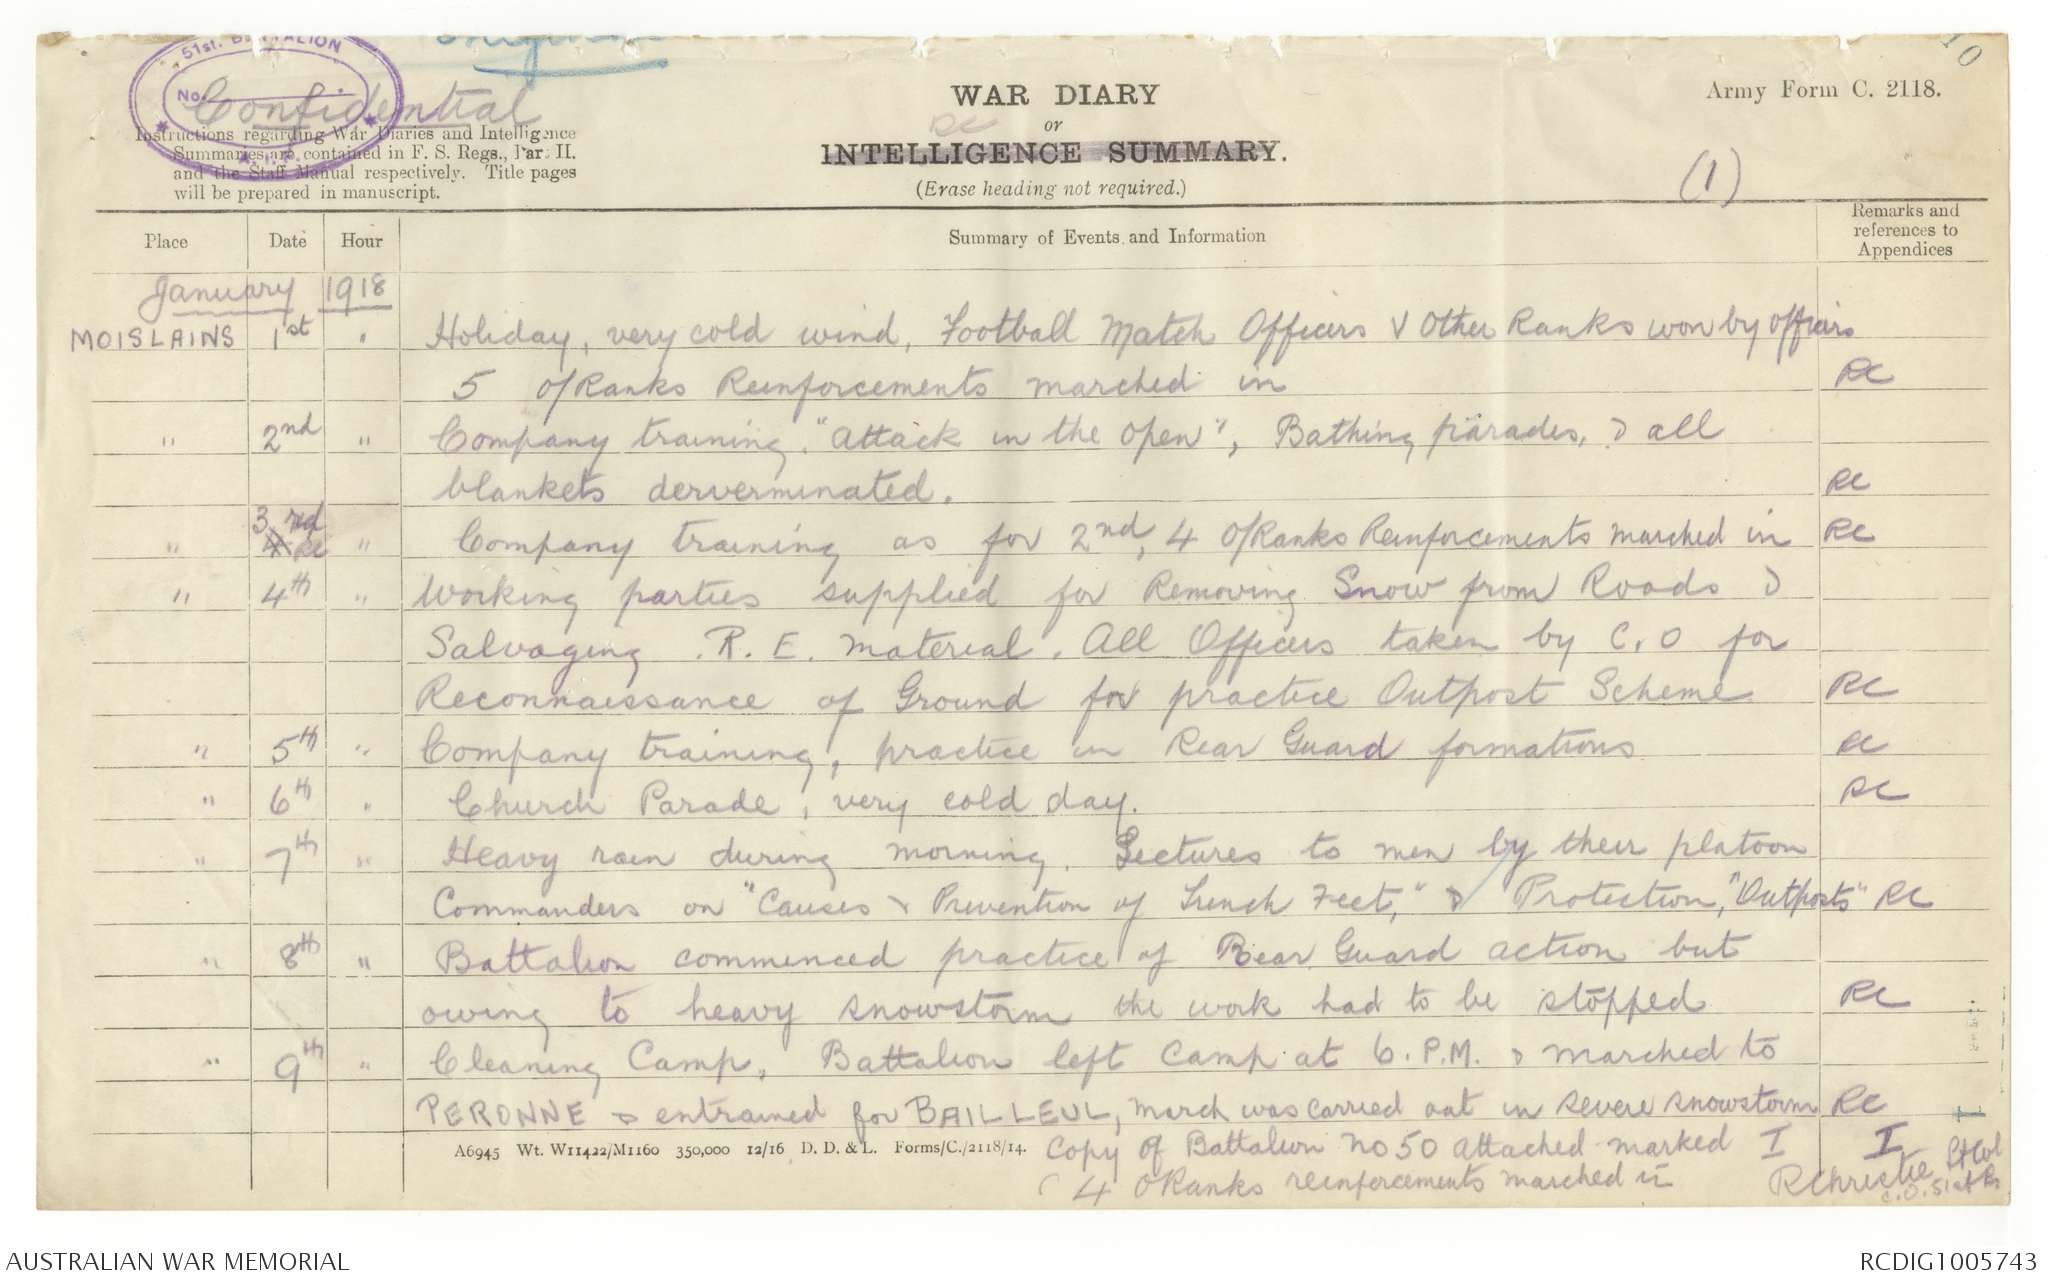 51st. BATTALION
No.
A.I.F.
Confidential
10
Army Form C. 2118.
WAR DIARY
RC
or
INTELLIGENCE SUMMARY.
(Erase heading not required.)
(1)
Instructions regarding War Diaries and Intelligence
Summaries are contained in F. S. Regs., Part II.
and the Staff Manual respectively. Title pages
will be prepared in manuscript.
Place Date Hour Summary of Events and Information Remarks and references to Appendices
January 1918
MOISLAINS 1st " Holiday, very cold wind, Football Match Officers & Other Ranks won by officers
5 O/Ranks Reinforcements marched in RC
" 2nd " Company training. "Attack in the open", Bathing parades, & all
blankets derverminated. RC
" 3rd 4 RC " Company training as for 2nd, 4 O/Ranks Reinforcements marched in RC
" 4th " Working parties supplied for Removing Snow from Roads &
Salvaging R. E. Material. All Officers taken by C.O for
Reconnaissance of Ground for practice Outpost Scheme RC
" 5th " Company training, practice in Rear Guard formations RC
" 6th " Church Parade, very cold day. RC
" 7th " Heavy rain during morning. Lectures to men by their platoon
Commanders on "Causes & Prevention of Trench Feet," & Protection, "Outposts" RC
" 8th " Battalion commenced practice of Rear Guard action but
owing to heavy snowstorm the work had to be stopped RC
" 9th " Cleaning Camp, Battalion left Camp at 6. P.M. & marched to
PERONNE & entrained for BAILLEUL, march was carried out in severe snowstorm RC
A6945 Wt. W11422/M1160 350,000 12/16 D. D. & L. Forms/C./2118/14.
Copy of Battalion no 50 attached marked I I
4 O Ranks reinforcements marched in
RChristie Lt Col
C.O. 51st Bn
AUSTRALIAN WAR MEMORIAL
RCDIG1005743